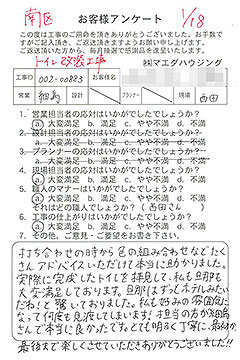 南区
1/18
お客様アンケート
この度は工事のご用命を頂きありがとうございました。お手数で
すがご記入頂き、ご返送頂きますようお願い申し上げます。
ご返送頂いた方から、毎月抽選で感謝品を進呈いたします。
トイレ改装工事
㈱マエダハウジング
工事ID 002-00883 お客様名
営業 細馬 設計 プランナー 現場 西田
1. 営業担当者の応対はいかがでしたでしょうか?
a. 大変満足 b. 満足 c. やや不満 d. 不満
2. 設計担当者の応対はいかがでしたでしょうか?
a. 大変満足 b. 満足 c. やや不満 d. 不満
3. プランナーの応対はいかがでしたでしょうか?
a. 大変満足 b. 満足 c. やや不満 d. 不満
4. 現場担当者の応対はいかがでしたでしょうか?
a. 大変満足 b. 満足 c. やや不満 d. 不満
5. 職人のマナーはいかがでしたでしょうか?
a. 大変満足 b. 満足 c. やや不満 d. 不満
それはどの職人でしょうか?(西田さん)
6. 工事の仕上がりはいかがでしたでしょうか?
a. 大変満足 b. 満足 c. やや不満 d. 不満
7. その他、ご意見・ご要望をお書き下さい。
打ち合わせの時から色の組み合わせなどたく
さんアドバイスいただけて本当に助かりました。
実際に完成したトイレを拝見して、私も旦那も
大変満足しております。旦那はずっとホテルみたい
だねと驚いておりました。私も好みの雰囲気に
なって何度も見渡してしまいます!担当の方が細馬
さんで本当に良かったです。とても明るく丁寧に、最初から
最後まで楽しくさせていただきありがとうございました!!